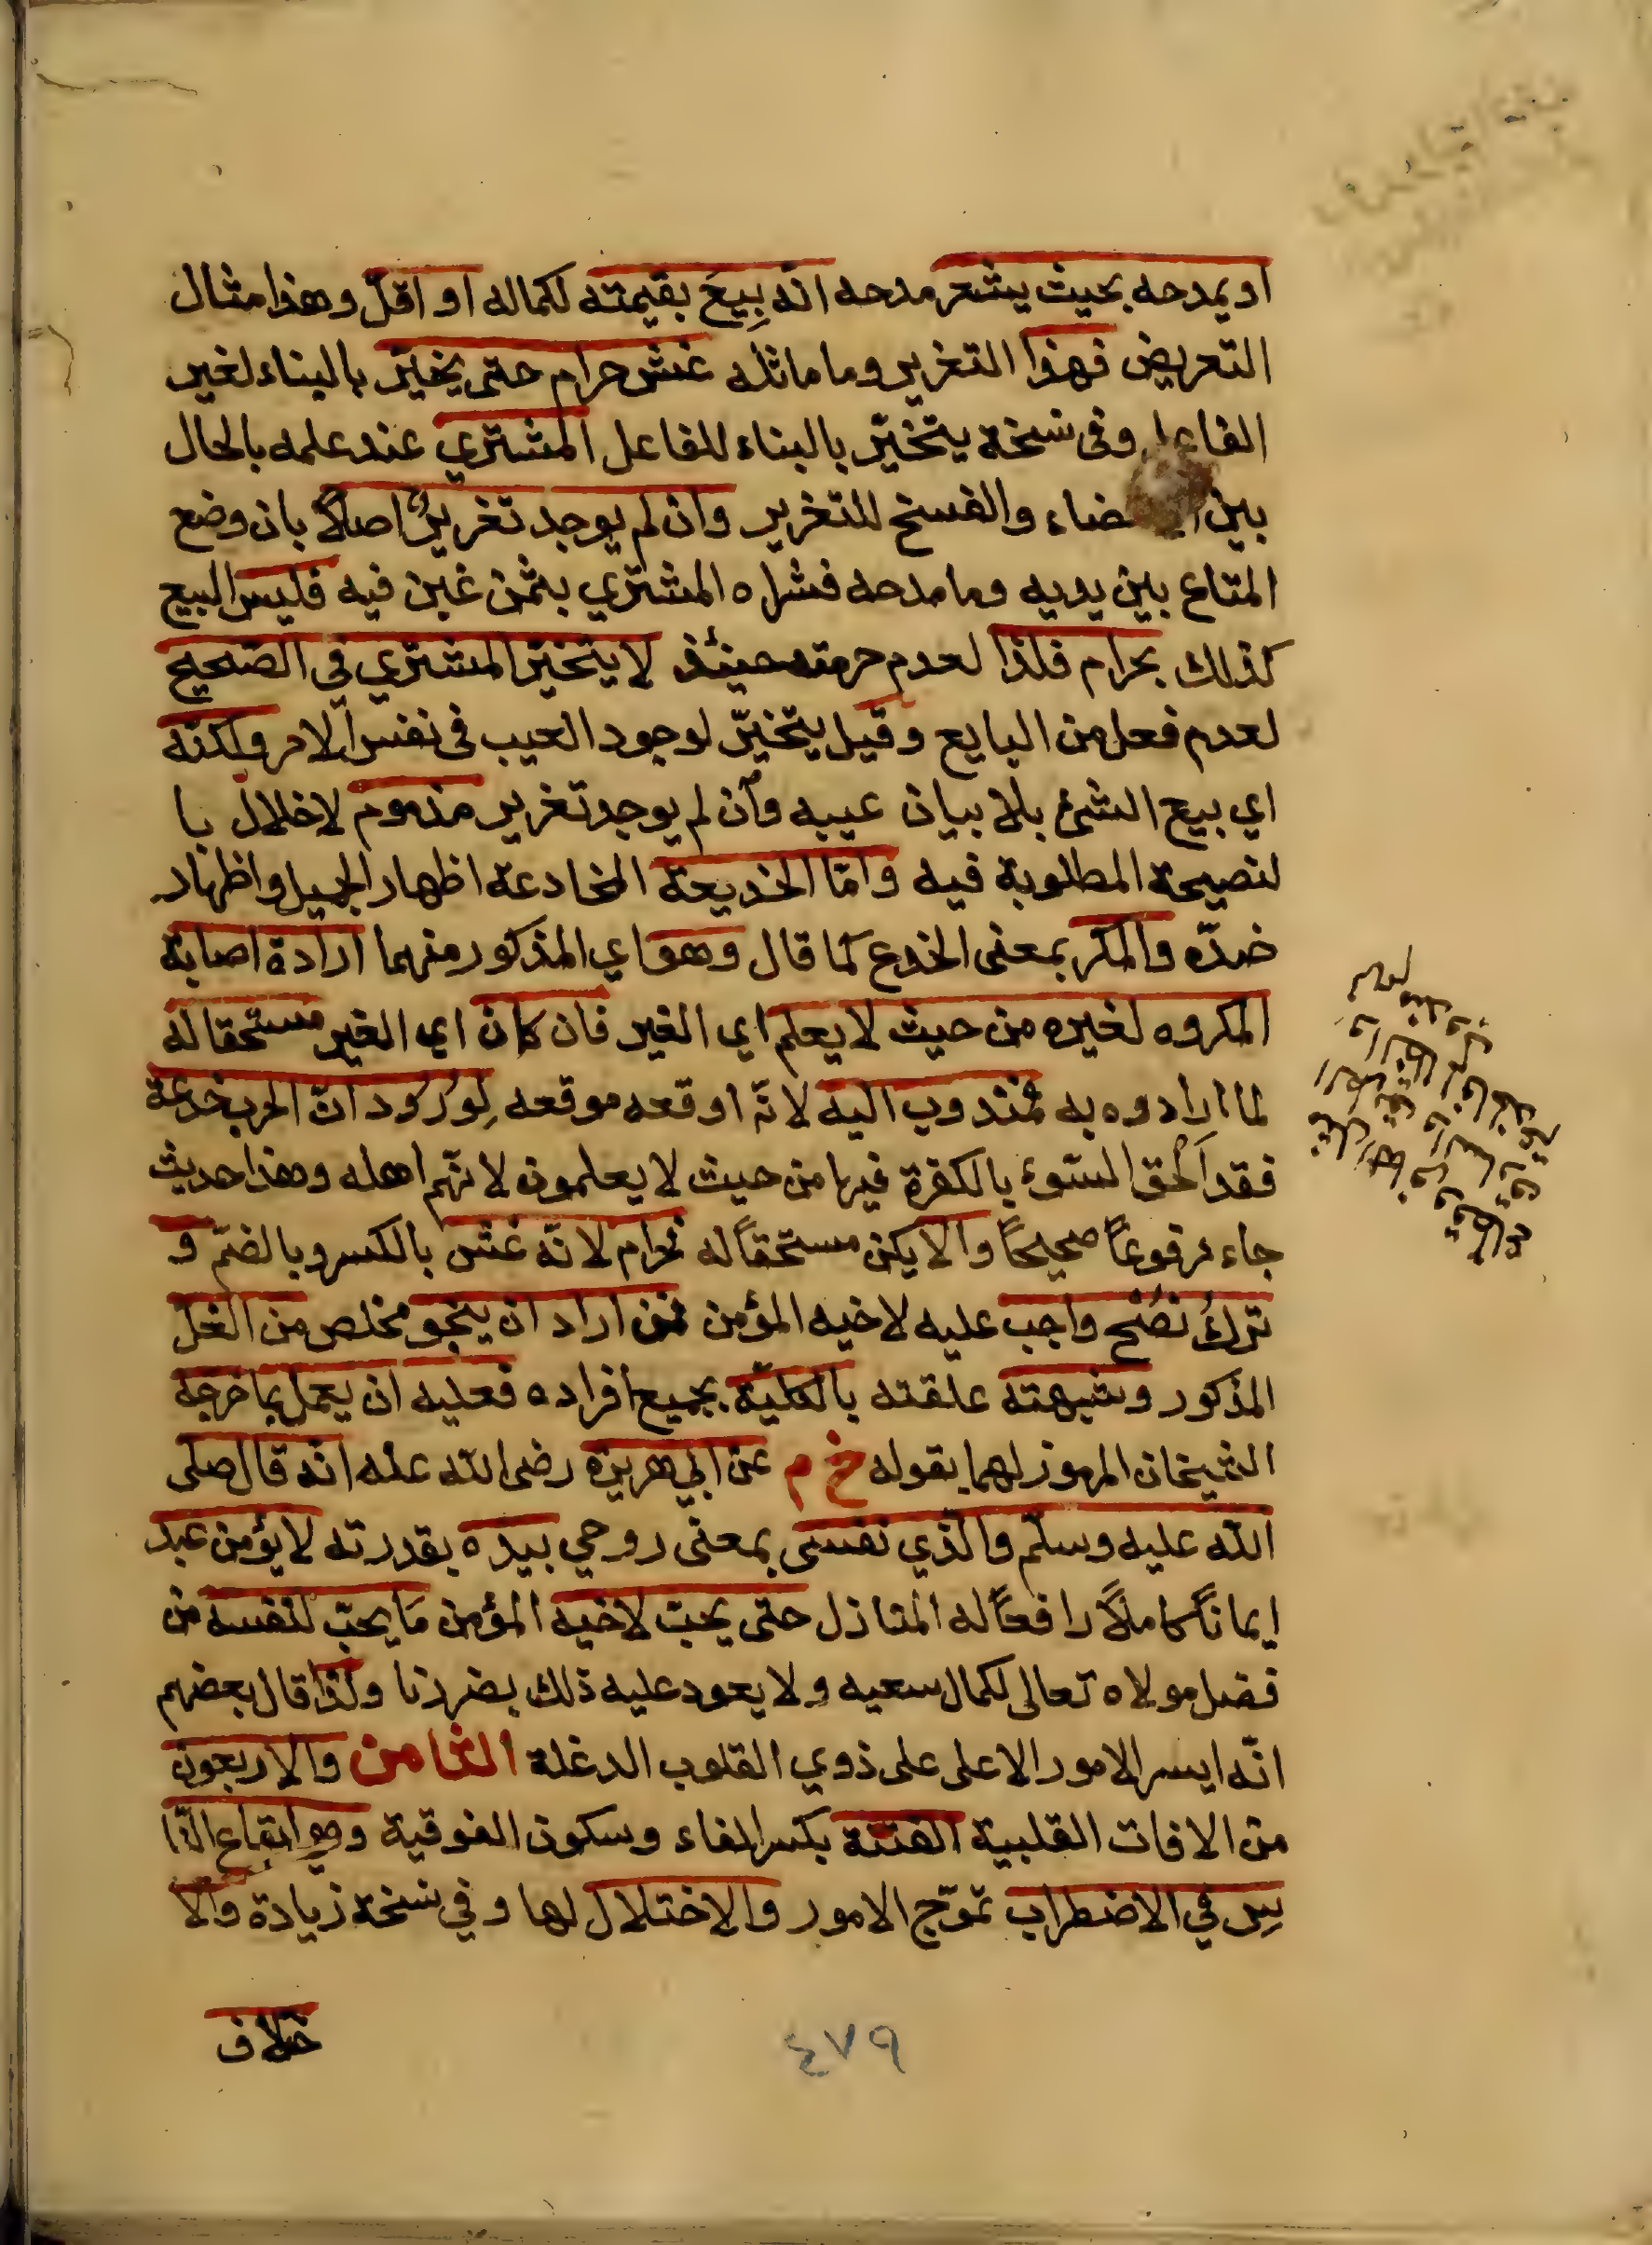 او يمدحه بحيث يشعر مدحه انه بِيعَ بقيمته لكماله او اقلّ وهذا مثال
التعريض فهذا التغرير وما ماثله غش حرام حتى يخيّر بالبناء لغير
الفاعل وفى نسخة يتخيّر بالبناء للفاعل المشتري عند علمه بالحال
بين ضاء والفسخ للتغرير وان لم يوجد تغريرٌ اصلاً بان وضع
المتاع بين يديه وما مدحه فشراه المشتري بثمن غبن فيه فليس البيع
كذلك بحرام فلذا لعدم حرمته حينئذ لا يتخيّر المشتري في الصّحيح
لعدم فعل من البايع وقيل يتخيّر لوجود العيب فى نفس الامر ولكنّه
اي بيع الشئ بلا بيان عيبه وان لم يوجد تغرير مذموم لاخلال با
لنصيحة المطلوبة فيه وامّا الخديعة المخادعة اظهار الجميل واظهار
ضدّه والمكر بمعنى الخدع كما قال وهو اي المذكور منهما ارادة اصابة
المكروه لغيره من حيث لا يعلم اي الغير فان كان اي الغير مستحقا له
لما اراده به فمندوب اليه لانّه اوقعه موقعه لِوُرُود انّ الحرب خدعة
فقد اَلحق السّوء بالكفرة فيها من حيث لا يعلمون لانّهم اهله وهذا حديث
جاء مرفوعاً صحيحاً والا يكن مستحقاً له فحرام لانّه غشّ بالكسر وبالضمّ و
تركُ نُصْح واجب عليه لاخيه المؤمن فمن اراد ان ينجو مخلص من الغلّ
المذكور وشبهته علقته بالكليّة بجميع افراده فعليه ان يعمل بما خرجه
الشيخان المرموز لهما بقوله خ م عن ابي هريرة رضى الله عنه انه قال صلى
الله عليه وسلّم والّذي نفسى بمعنى روحي بيده بقدرته لا يؤمن عبد
ايماناً كاملاً رافعاً له المنازل حتى يحبّ لاخيه المؤمن مَا يحبّ لنفسه من
فضل مولاه تعالى لكمال سعيه ولا يعود عليه ذلك بضرر نا ولذا قال بعضهم
انّه ايسر الامور الا على على ذوي القلوب الدغلة الثامن والاربعون
من الافات القلبية الفتنة بكسر الفاء وسكون الفوقية وهو ايقاع النّا
سِ في الاضطراب تموّج الامور والاختلال لها وفي نسخة زيادة والا
خلاف
٤٧٩